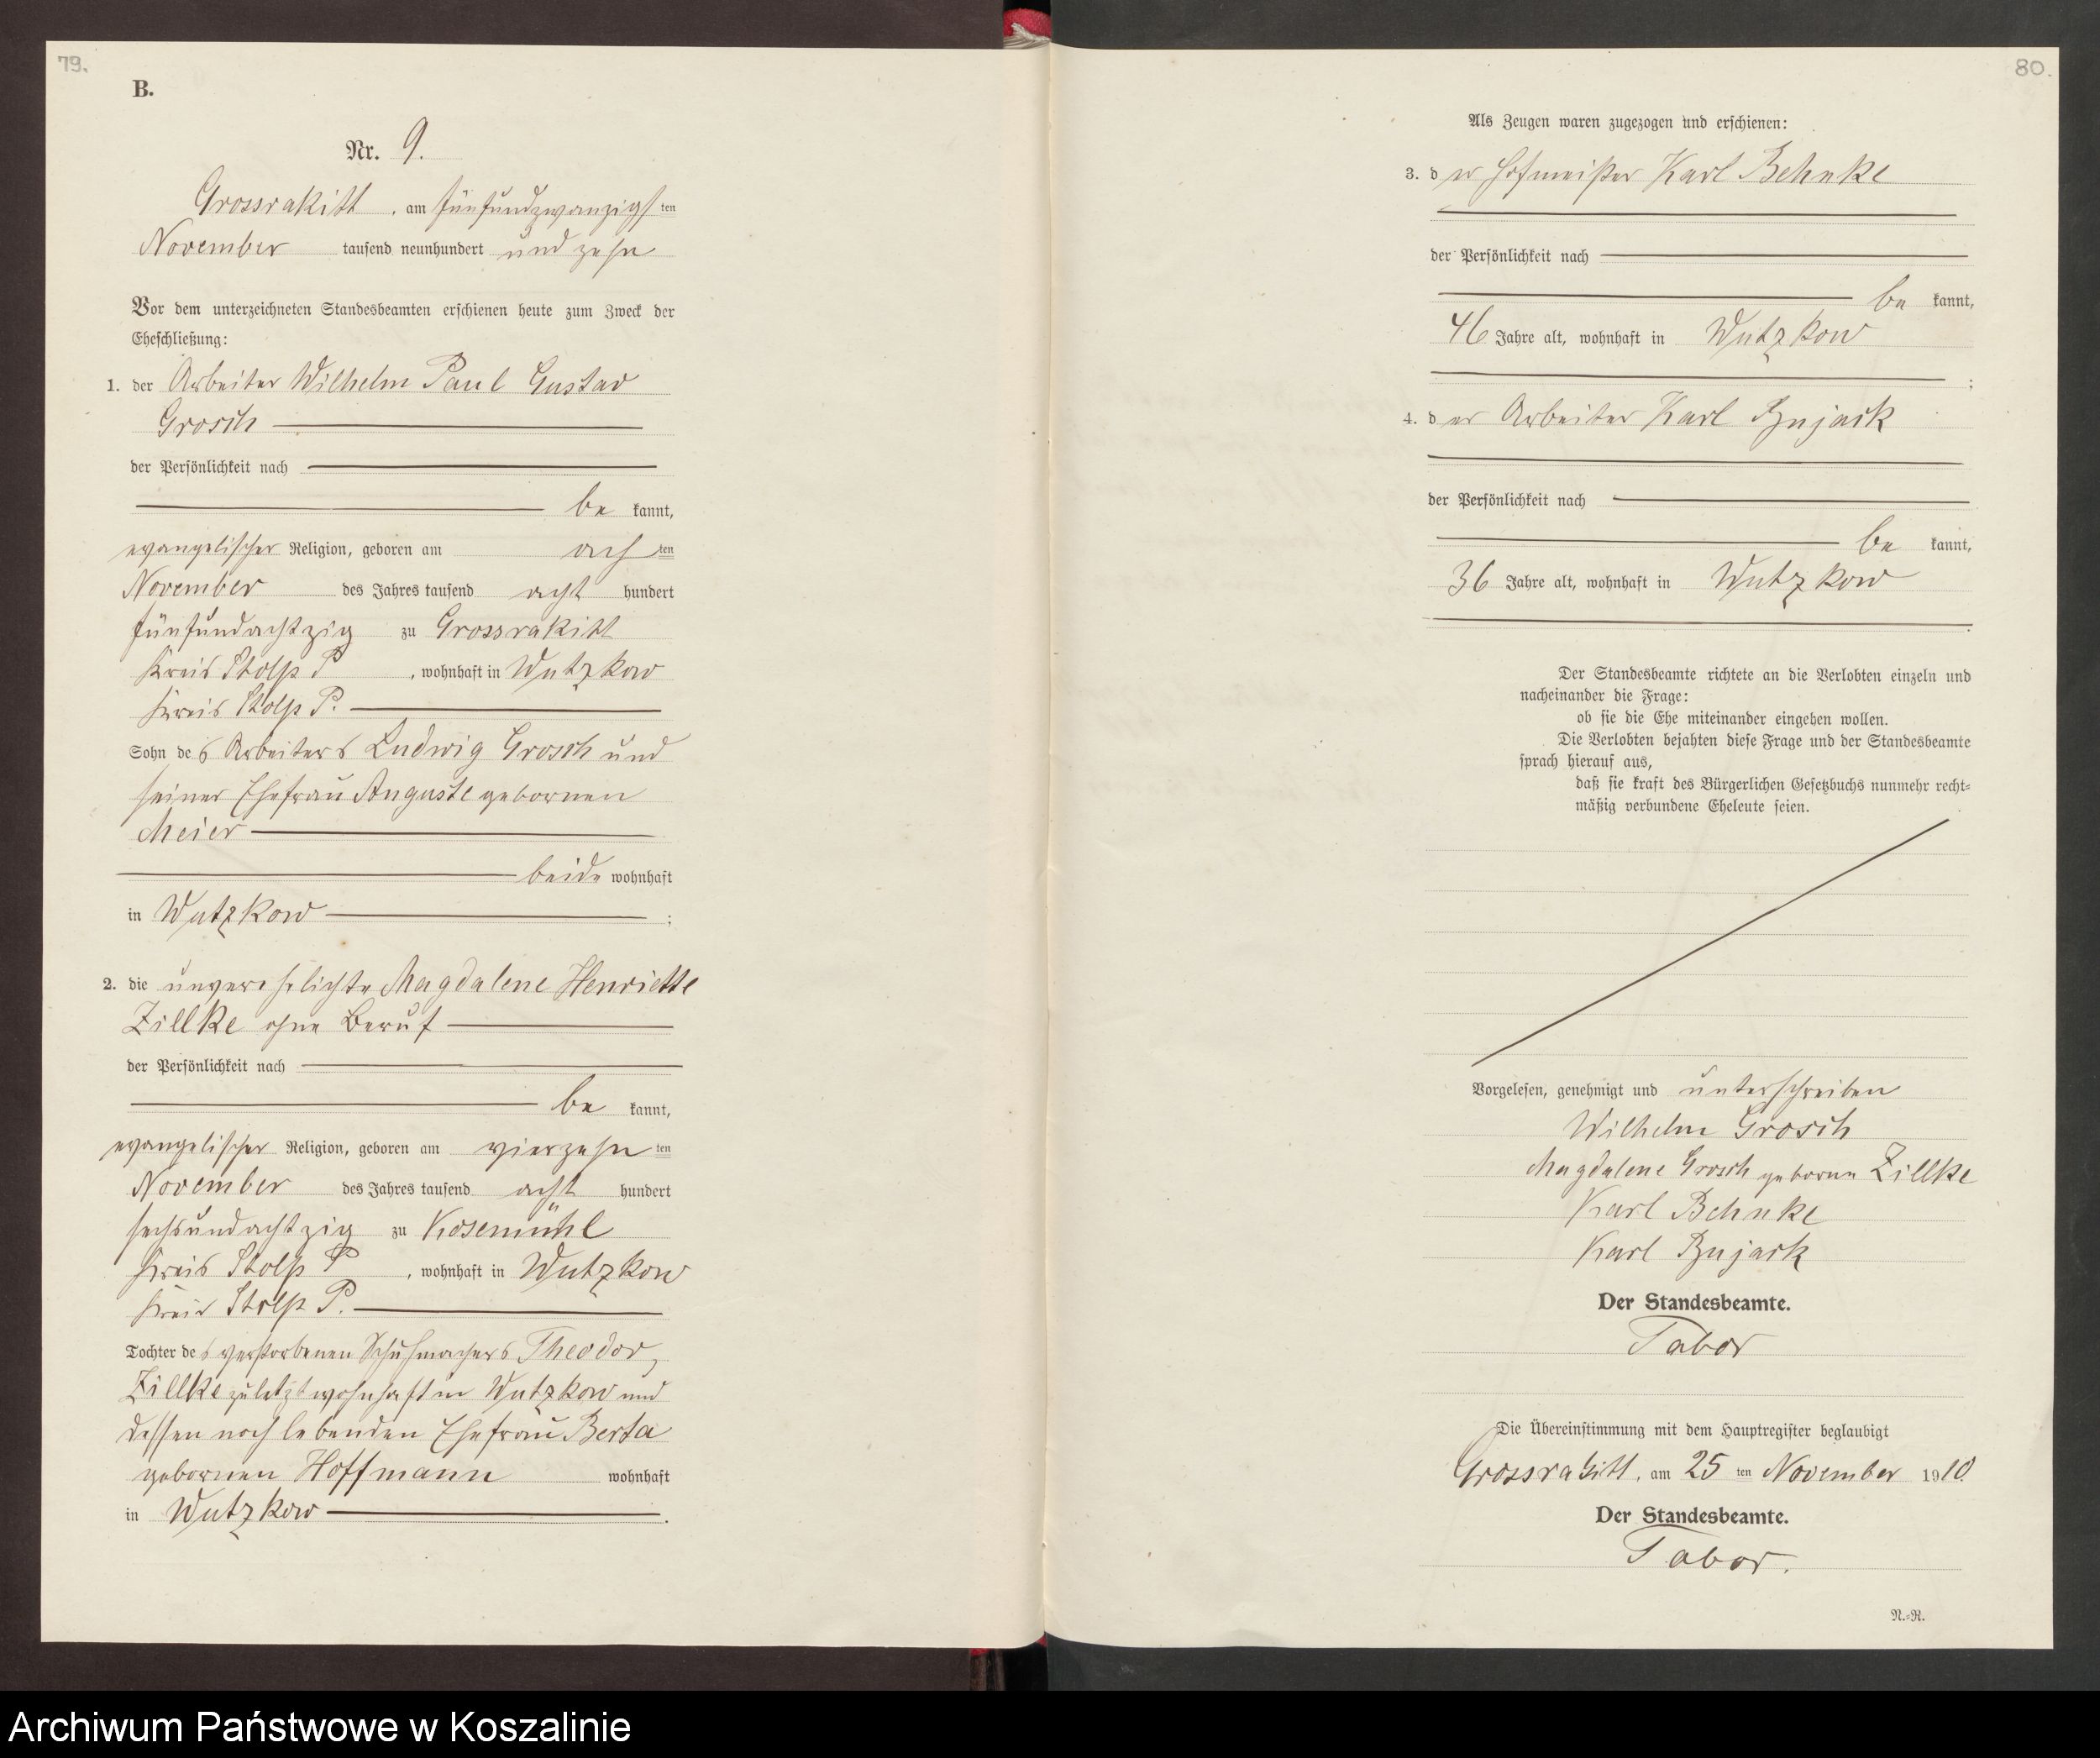 79.
B.
Nr. 9.
Grossrakitt, am fünfundzwanzigsten
November tausend neunhundert und zehn
Vor dem unterzeichneten Standesbeamten erschienen heute zum Zweck der
Eheschließung:
1. der Arbeiter Wilhelm Paul Gustav
Grosch
der Persönlichkeit nach
be kannt,
evangelischer Religion, geboren am achten
November des Jahres tausend acht hundert
fünfundachtzig zu Grossrakitt
Kreis Stolp P , wohnhaft in Wutzkow
Kreis Stolp P.
Sohn des Arbeiters Ludwig Grosch und
seiner Ehefrau Auguste gebornen
Meier
beide wohnhaft
in Wutzkow ;
2. die unverehelichte Magdalene Henriette
Zillke ohne Beruf
der Persönlichkeit nach
be kannt,
evangelischer Religion, geboren am vierzehnten
November des Jahres tausend acht hundert
sechsundachtzig zu Kosemühl
Kreis Stolp P , wohnhaft in Wutzkow
Kreis Stolp P.
Tochter des verstorbenen Schuhmachers Theodor
Zillke zuletzt wohnhaft in Wutzkow und
dessen noch lebenden Ehefrau Berta
gebornen Hoffmann wohnhaft
in Wutzkow .
80.
Als Zeugen waren zugezogen und erschienen:
3. der Hofmeister Karl Behnke
der Persönlichkeit nach
be kannt,
46 Jahre alt, wohnhaft in Wutzkow
;
4. der Arbeiter Karl Bujack
der Persönlichkeit nach
be kannt,
36 Jahre alt, wohnhaft in Wutzkow
.
Der Standesbeamte richtete an die Verlobten einzeln und
nacheinander die Frage:
ob sie die Ehe miteinander eingehen wollen.
Die Verlobten bejahten diese Frage und der Standesbeamte
sprach hierauf aus,
daß sie kraft des Bürgerlichen Gesetzbuchs nunmehr recht-
mäßig verbundene Eheleute seien.
Vorgelesen, genehmigt und unterschreiben
Wilhelm Grosch
Magdalene Grosch geborne Zillke
Karl Behnke
Karl Bujack
Der Standesbeamte.
Tabor
Die Übereinstimmung mit dem Hauptregister beglaubigt
Grossrakitt, am 25 ten November 1910.
Der Standesbeamte.
Tabor.
N.-R.
Archiwum Państwowe w Koszalinie